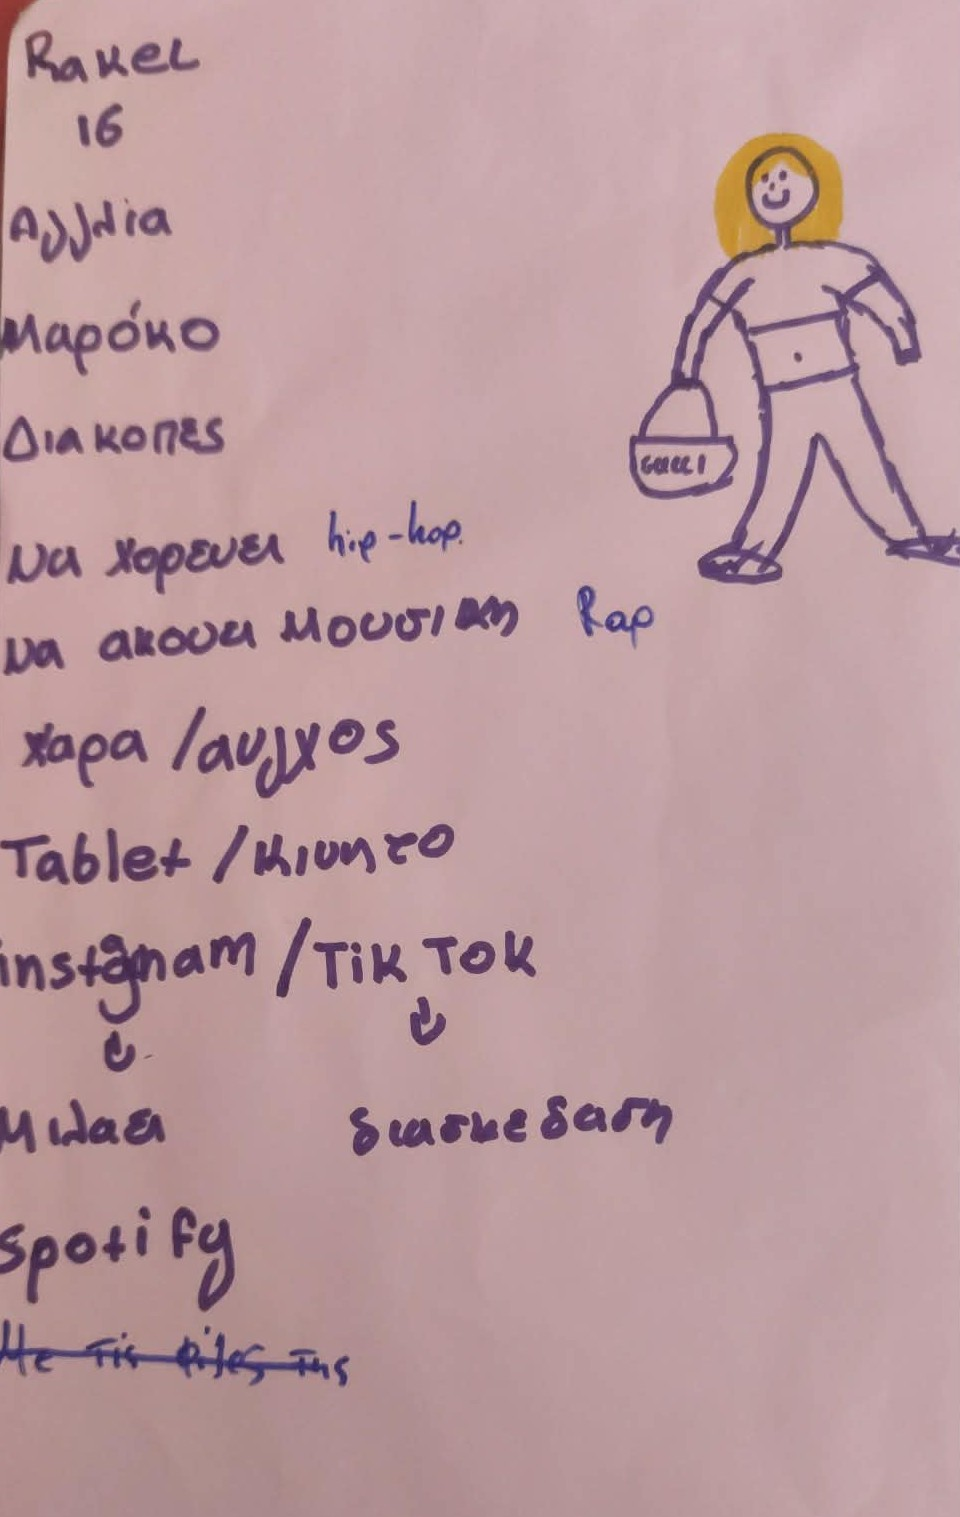 Rakel
16
Αγγλία
Μαρόκο
Διακοπες
GUCCI
Να χορευει hip-hop.
Να ακουει Μουσικη Rap
χαρα / αυγχος
Tablet / κινητο
instagnam / Tik Tok
Μιλαει διασκεδαση
Spotify
Με τις φίλες της